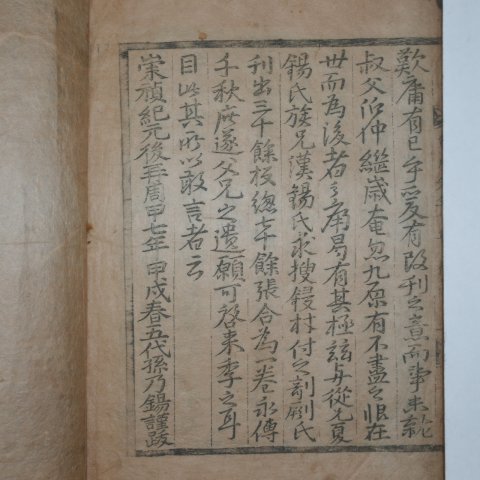 歎庸有已乎爰有改刊之意而事未就
叔父伯仲繼歲奄忽九原有不盡之恨在
世而爲後者之痛曷有其極玆与從兄夏
錫氏族兄漢錫氏求搜鋟材付之剞劂氏
刊出三十餘板總七十餘張合為一卷永傳
千秋庶遂父兄之遺願可啓来季之耳
目此其所以敢言者云
崇禎紀元後再周甲七年甲戌春五代孫乃錫謹跋